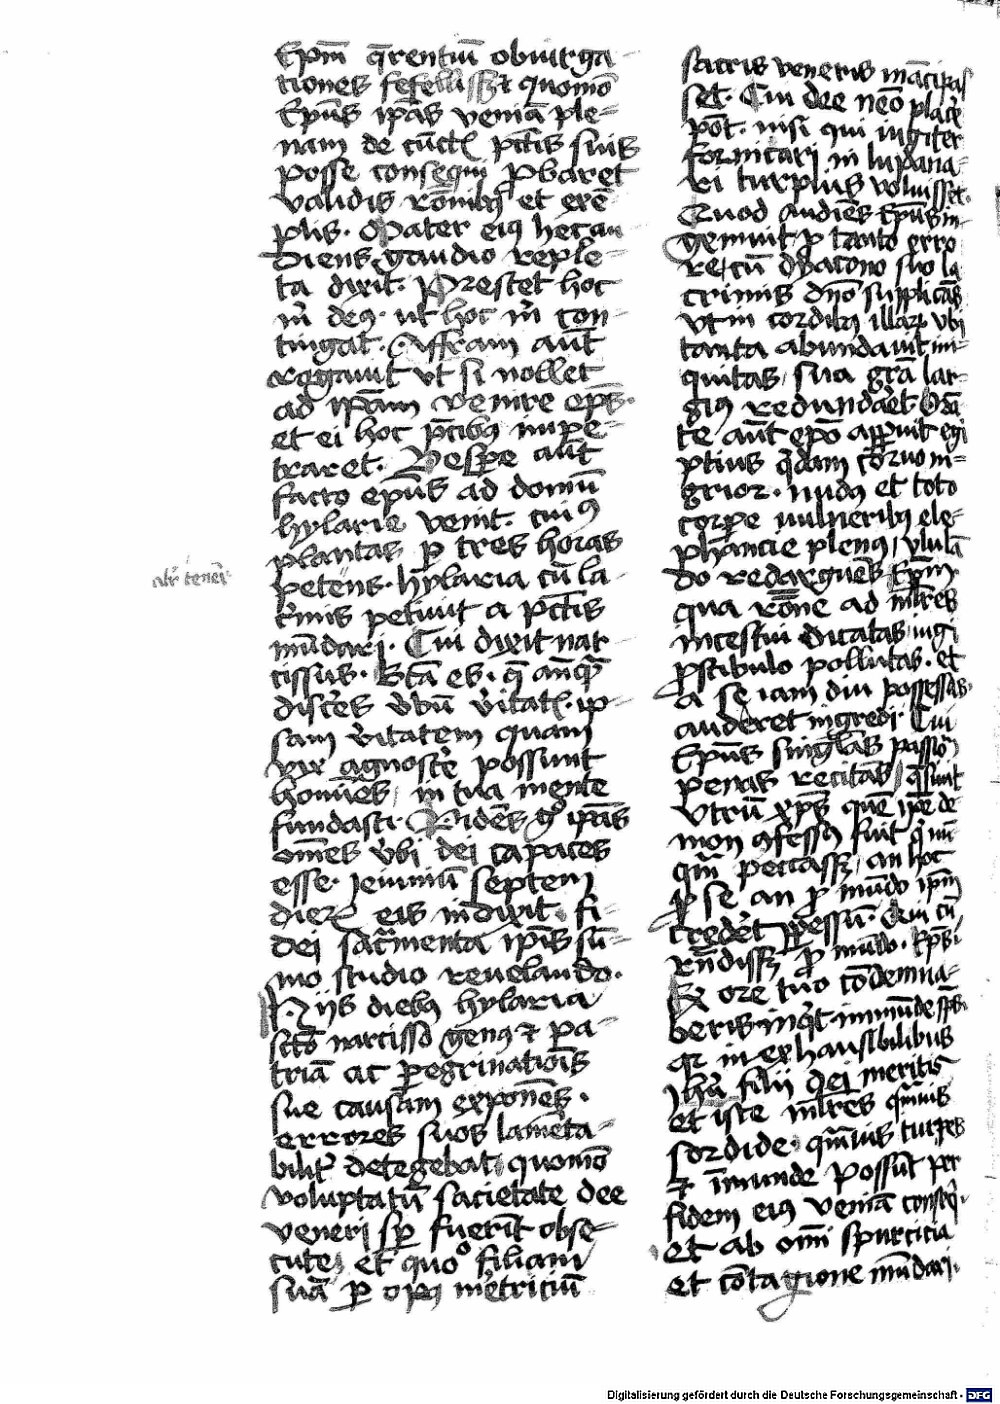 Ep̄m q̄rentiū obiurga
tiones fefelliss₃ et quomō
Ep̄us ip̄as veniā ple=
nam de cūctꝭ pctīs suis
posse consequi ꝓbaret
validis rōnibꝰ et exē
plis. Mater eiꝰ hec au
diens gaudio reple=
ta dixit. Prestet hoc
m̄ deꝰ. ut hoc m̄ con=
tingat. Affram aut̄
rogauit vt si nollet
ad ip̄am venire ep̄s.
et ei hoc p̄cibꝰ impe=
traret. Vespere aut̄
facto ep̄us ad domū
hylarie venit. cuiꝰ
plantas ꝑ tres horas
alr̄ tener̄
petens. hylaria cū la
cr̄mis petiuit a pctīs
mūdari. Cui dixit nar
cissus. Btā es. q̄ anqͣ
disceres v̄bū v̄itatꝭ. ip=
sam v̄itatem quam
vix agnosce̅ possunt
homīes, in tua mente
fundasti. Videns gͦ ip̄as
om̄es v̄bi dei capaces
esse. Jeiuniū septem
dierꝝ eis indixit. fi=
dei sacͣmenta ip̄is sū=
mo studio reuelando.
Hijs diebꝰ hylaria
sctō narcisso genꝰ et pa=
triā ac ꝑegrinatiōis
sue causam exponēs.
errores suos lamēta=
bilitͬ detegebat, quomō
voluptatū sacietate dee
veneri sp̄ fuerīt obse=
cute, et quoͦ filiam
suā ꝑ opꝰ mētriciū
sacris veneris mācipas
set. Cui dee nēo place̅
pōt. nisi qui iugiter
fornicari in lupana=
ri turpius voluisset.
Quod audiēs Ep̄us in=
gemuit ꝓ tanto erro
re, cū dyacono suo la
crimis dn̄o supplicās
vt in cordibꝰ illarꝝ vbi
tanta abundauit ini=
quitas, sua grā lar=
giꝰ redundaret. Orā
te aut̄ ep̄o apparuit egi
ptius qͥdam coruo ni=
grior. nudꝰ et toto
corpore vulneribꝰ ele=
phancie plenꝰ, vlulā
do redarguēs Ep̄m.
qua rōne ad ml̄res
incestui dicatas, iugi
ꝓstibulo pollutas. et
a se iam diu possessas.
auderet ingredi. Cui
Ep̄us singlās passiōͫ
penas recitās, q̄siuit
vtrū xp̄s quē ip̄e de
mon ꝯfessꝰ fuit qͥ nū
qͣm peccass₃, an hoc
ꝓ se an ꝓ mūdo ip̄m
crederet ꝑpessū. Qui cū
rn̄diss₃ ꝓ mūdo. Ep̄s.
Ex ore tuo cōdemna=
beris inqͥt immūde sp̄s
qꝛ in exhausibilibus
Jhū filii dei meritis
et iste ml̄res qͣmuis
sordide. qͣmuis turpes
et īmunde possūt per
fidem eiꝰ veniā conseqͥ.
et ab om̄i spurcicia
et cōtagione mūdari.
Digitalisierung gefördert durch die Deutsche Forschungsgemeinschaft - DFG